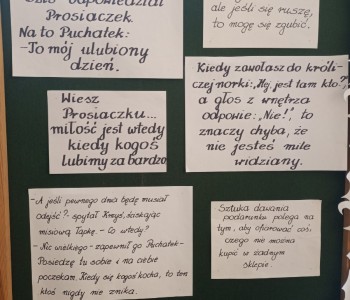 Dziś - odpowiedział
Prosiaczek.
Na to Puchatek:
-To mój ulubiony
dzień.
ale jeśli się ruszę,
to mogę się zgubić.
Kiedy zawołasz do króli-
czej norki: „Hej, jest tam kto?",
a głos z wnętrza
odpowie: „Nie!", to
znaczy chyba, że
nie jesteś mile
widziany.
Wiesz
Prosiaczku...
miłość jest wtedy
kiedy kogoś
lubimy za bardzo.
-A jeśli pewnego dnia będę musiał
odejść?- spytał Krzyś, ściskając
misiową łapkę - Co wtedy?
- Nic wielkiego - zapewnił go Puchatek-
Posiedzę tu sobie i na ciebie
poczekam. Kiedy się kogoś kocha, to ten
ktoś nigdy nie znika.
Sztuka dawania
podarunku polega na
tym, aby ofiarować coś,
czego nie można
kupić w żadnym
sklepie.